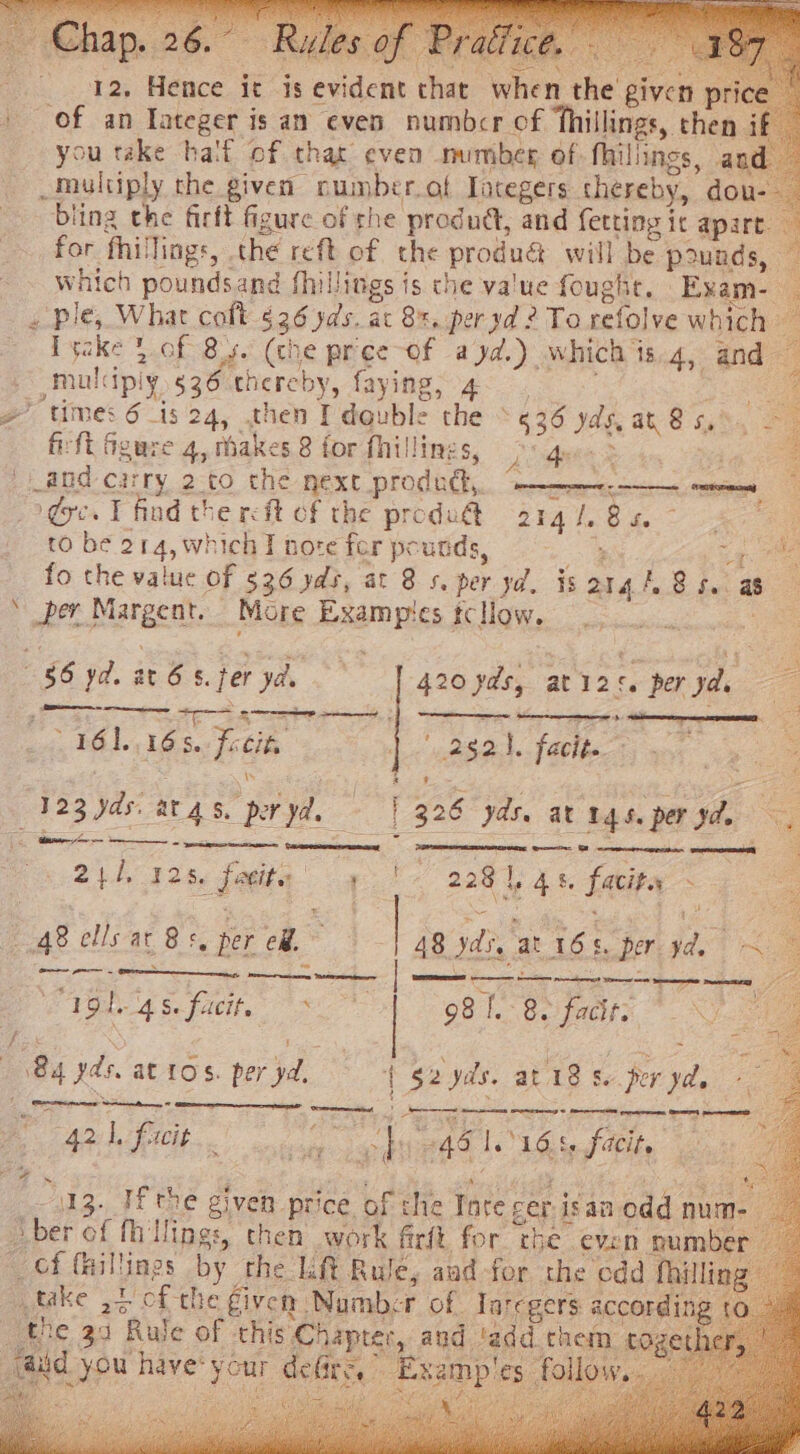 Chap. 26. Rules of Practice. 187
12. Hence it is evident that when the given price
of an Integer is an even number of ſhillings, then if
you take half of that even number of ſhillings, and
multiply the given number of Integers thereby, dou-
bling the firſt figure of the product, and ſetting it apart
for ſhillings, the reſt of the product will be pounds,
which pounds and ſhillings is the value ſought. Exam-
ple, What coſt 536 yds. at 8s. per yd? To reſolve which
I take ½ of 8 s. (the price of a yd.) which is 4, and
multiply 536 thereby, ſaying, 4
times 6 is 24, then I double the 536 yds, at 8 s.
firſt figure 4, makes 8 for ſhillings, 4
and carry 2 to the next product,
&c. I find the reſt of the product 214 l. 8 s.
to be 214, which I note for pounds,
ſo the value of 536 yds, at 8 s. per yd. is 214 l. 8 s. as
per Margent. More Examples follow.
56 yd. at 6 s. per yd. 420 yds, at 12 s. per yd.
16 l. 16 s. facit. 252 l. facit.
123 yds. at 4 s. per yd. 326 yds. at 14 s. per yd.
24 l. 12 s. facit. 228 l. 4 s. facit.
48 ells at 8 s. per ell. 48 yds. at 16 s. per yd.
19 l. 4 s. facit. 98 l. 8. facit.
84 yds. at 10 s. per yd. 52 yds. at 18 s. per yd.
42 l. facit 46 l. 16 s. facit.
13. If the given price of the Integer is an odd num-
ber of ſhillings, then work firſt for the even number
of ſhillings by the laſt Rule, and for the odd ſhilling
take of the given Number of Integers according to
the 3d Rule of this Chapter, and add them together,
and you have your deſire, Examples follow.
422